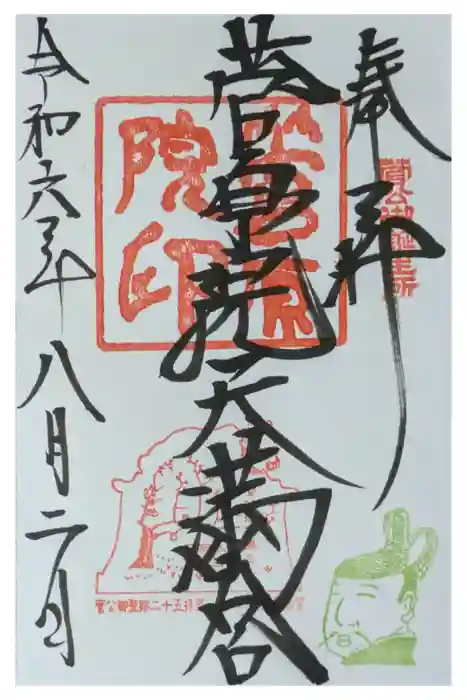 奉拝
菅公御誕生所
菅原院天満宮
菅原院印
菅公御聖蹟二十五拝
令和六年八月二日